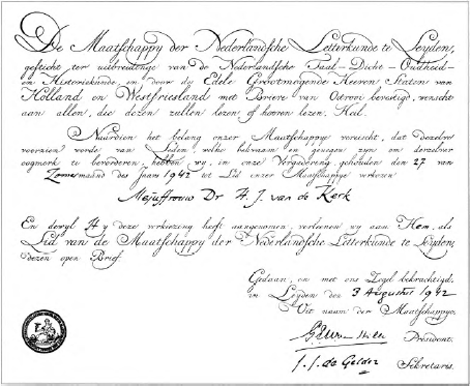 De Maatschappy der Nederlandsche Letterkunde te Leyden,
gesticht ter uitbreidinge van de Nederlandsche Taal- Dicht- Oudheid-
en Historiekunde, en door de Edele Grootmogende Heeren Staten van
Holland en Westfriesland met Brieve van Octroy bevestigd, wenscht
aan allen, die dezen zullen lezen of hooren lezen, Heil.
Naardien het belang onzer Maatschappye vereischt, dat dezelve
voorzien worde van Leden, welke bekwaam en genegen zyn om derzelver
oogmerk te bevorderen, hebben wy, in onze Vergadering, gehouden den 27 van
Zomermaand des Jaars 1942 tot Lid onzer Maatschappye verkoren
Mejuffrouw Dr A. J. van de Kerk
En dewyl Hy deze verkiezing heeft aangenomen, verleenen wy aan Hem, als
Lid van de Maatschappy der Nederlandsche Letterkunde te Leyden,
dezen open Brief.
Gedaan, en met ons Zegel bekrachtigd,
in Leyden den 3 Augustus 1942
Uit naam der Maatschappye,
President.
J. J. de Gelder Sekretaris.